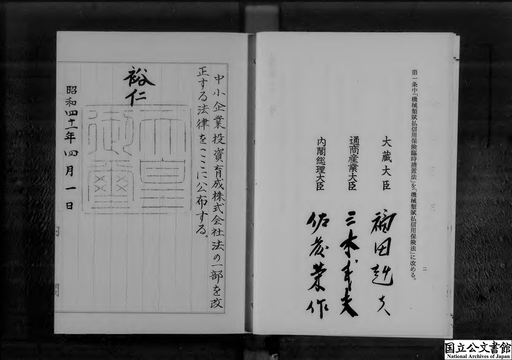 第一条中「機械類賦払信用保険臨時措置法」を「機械類賦払信用保険法」に改める。
二
大蔵大臣 福田赳夫
通商産業大臣 三木武夫
内閣総理大臣 佐藤榮作
中小企業投資育成株式会社法の一部を改
正する法律をここに公布する。
裕仁
天皇
御璽
昭和四十二年四月一日
国立公文書館
National Archives of Japan